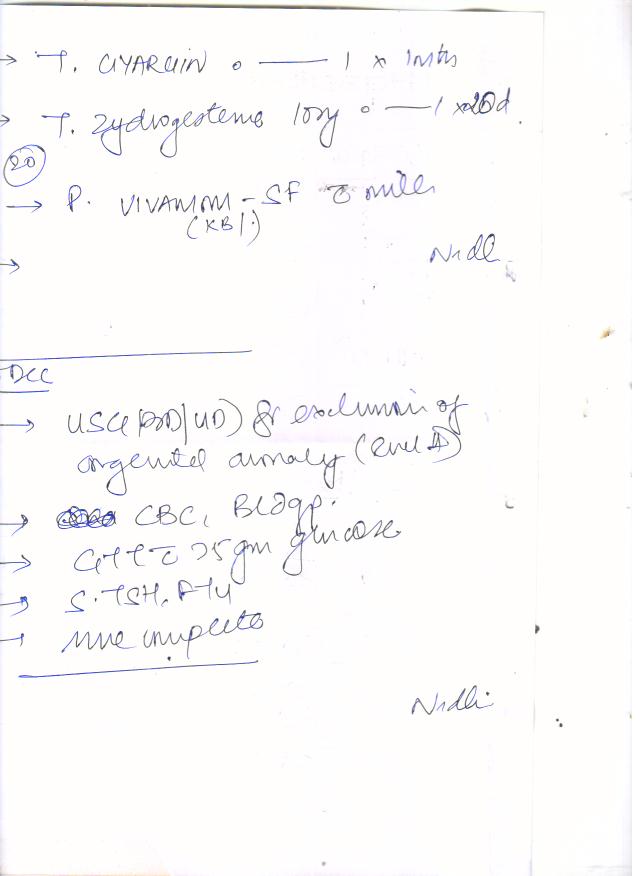 → T. GYARGIN o —— 1 x 1mth
→ T. Zydrogesterne 10mg o —— 1 x 20d.
20
→ P. VIVAMOM - SF c̄ milk
(KB/.)
→ Nidhi
DCC
→ USG (BD/UD) for exclusion of
congenital anomaly (level II)
→ CBC, Bldgp.
→ GTT c̄ 75 gm glucose
→ S. TSH, FT4
→ urine complete
Nidhi